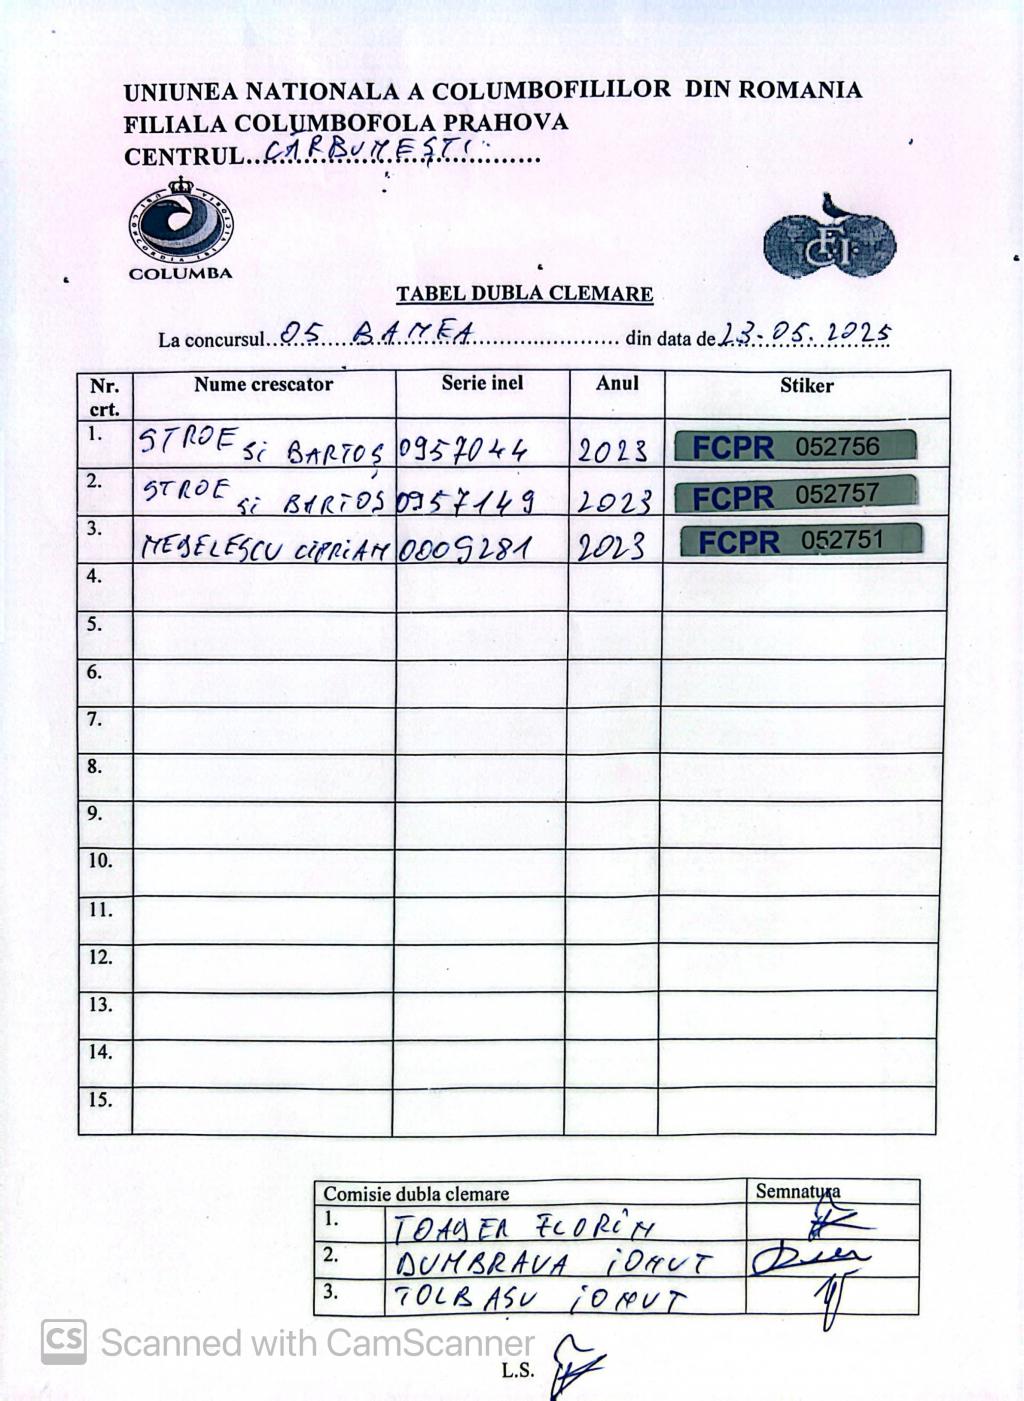 UNIUNEA NATIONALA A COLUMBOFILILOR DIN ROMANIA
FILIALA COLUMBOFOLA PRAHOVA
CENTRUL...CĂRBUNEȘTI...
COLUMBA
FCI
TABEL DUBLA CLEMARE
La concursul...05 BANEA... din data de 23-05.2025
Nr. crt. Nume crescator Serie inel Anul Stiker
1. STROE si BARTOȘ 0957044 2023 FCPR 052756
2. STROE si BARTOȘ 0957149 2023 FCPR 052757
3. NEDELESCU CIPRIAN 0009281 2023 FCPR 052751
4.
5.
6.
7.
8.
9.
10.
11.
12.
13.
14.
15.
Comisie dubla clemare Semnatura
1. FLORIN
2. DUMBRAVA IONUT
3. TOLBASU IONUT
CS Scanned with CamScanner
L.S.